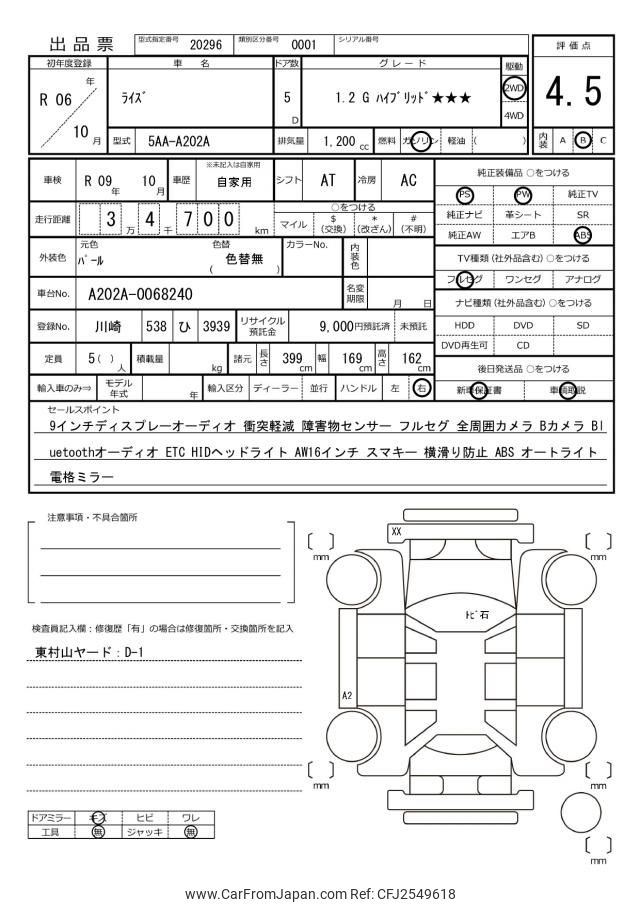 出品票
型式指定番号 20296 類別区分番号 0001 シリアル番号
評価点
初年度登録 車名 ドア数 グレード 駆動
R 06 年 10 月
ﾗｲｽﾞ
5 D
1.2 G ﾊｲﾌﾞﾘｯﾄﾞ★★★
2WD
4WD
4.5
型式 5AA-A202A 排気量 1,200 cc 燃料 ガソリン 軽油 ( )
内装 A B C
車検 R 09 年 10 月 車歴 ※未記入は自家用 自家用 シフト AT 冷房 AC
純正装備品 ○をつける
PS PW 純正TV
純正ナビ 革シート SR
純正AW エアB ABS
走行距離 3 万 4 千 7 0 0 km
○をつける
マイル $(交換) *(改ざん) #(不明)
外装色 元色 ﾊﾟｰﾙ 色替 ( 色替無 ) カラーNo. 内装色
TV種類(社外品含む) ○をつける
フルセグ ワンセグ アナログ
車台No. A202A-0068240 名変期限 月 日
ナビ種類(社外品含む) ○をつける
HDD DVD SD
DVD再生可 CD
登録No. 川崎 538 ひ 3939 リサイクル預託金 9,000円預託済 未預託
定員 5( )人 積載量 kg 諸元 長さ 399cm 幅 169cm 高さ 162cm
後日発送品 ○をつける
新車保証書 車輌取説
輸入車のみ⇒ モデル年式 年 輸入区分 ディーラー 並行 ハンドル 左 右
セールスポイント
9インチディスプレーオーディオ 衝突軽減 障害物センサー フルセグ 全周囲カメラ Bカメラ Bl
uetoothオーディオ ETC HIDヘッドライト AW16インチ スマキー 横滑り防止 ABS オートライト
電格ミラー
注意事項・不具合箇所
検査員記入欄：修復歴「有」の場合は修復箇所・交換箇所を記入
東村山ヤード：D-1
XX
mm
mm
ﾄﾋﾞ石
A2
mm
mm
mm
ドアミラー キズ ヒビ ワレ
工具 無 ジャッキ 無
www.CarFromJapan.com Ref: CFJ2549618